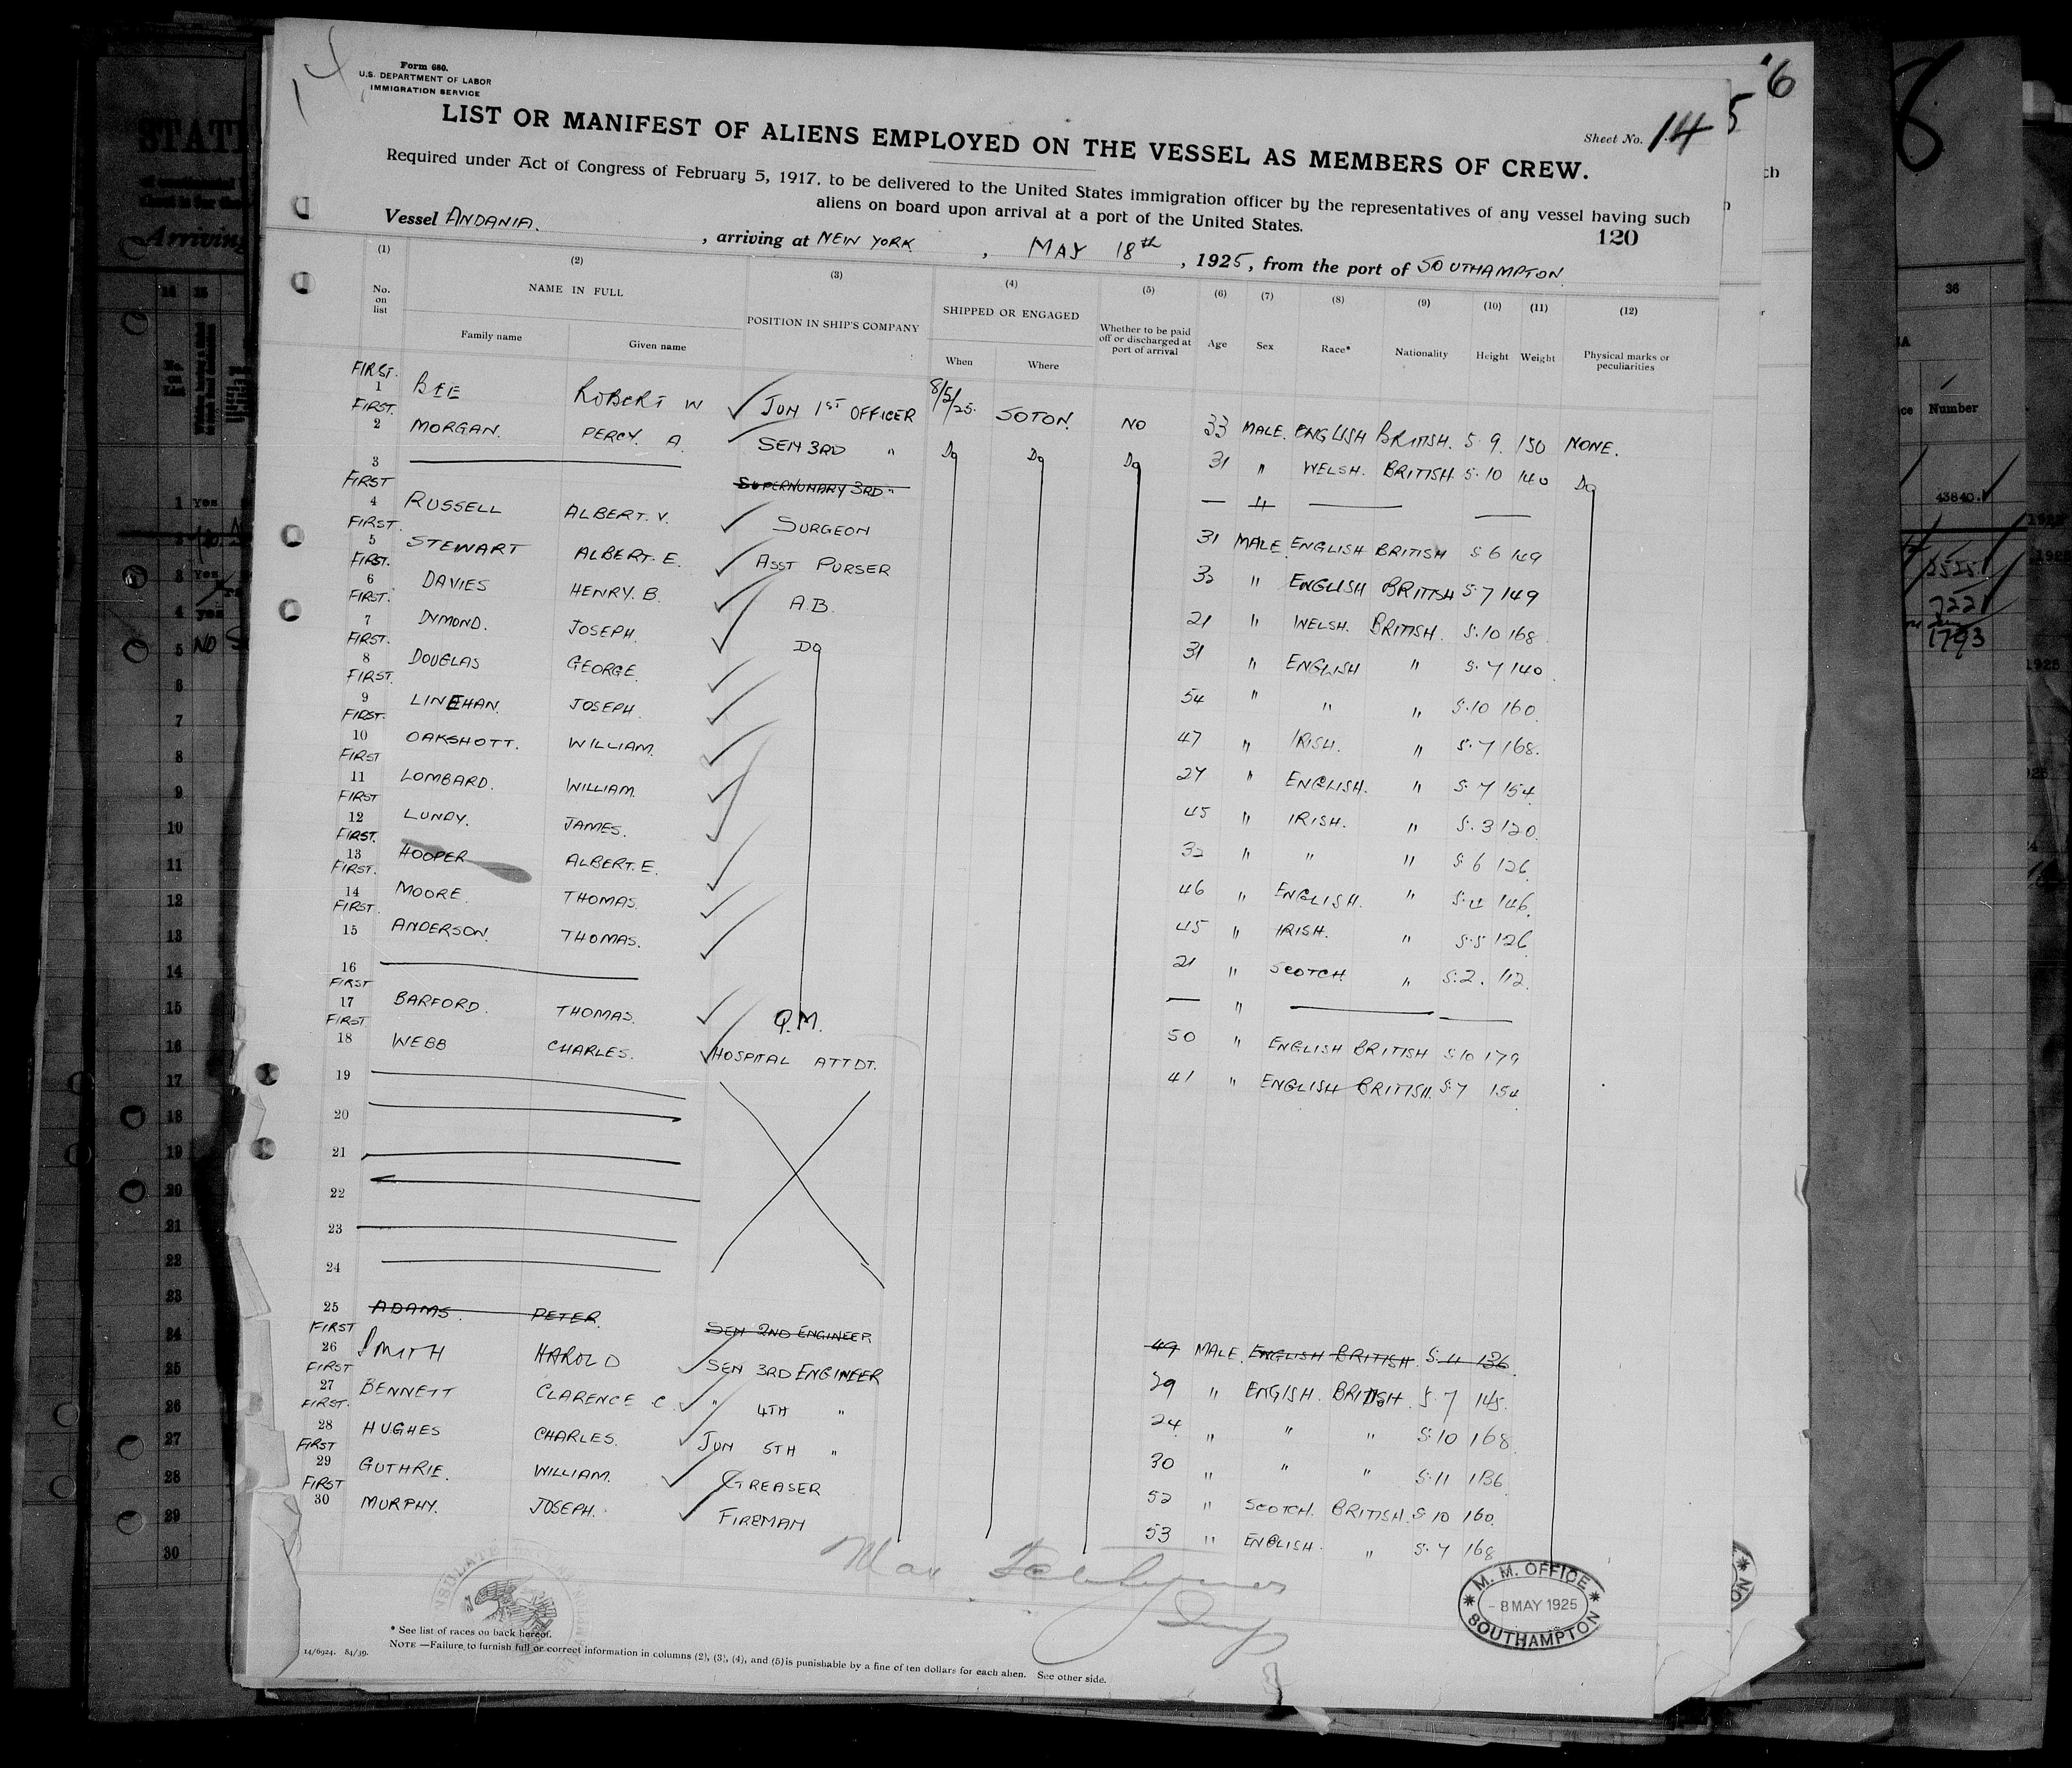 Form 680.
U.S. DEPARTMENT OF LABOR
IMMIGRATION SERVICE
LIST OR MANIFEST OF ALIENS EMPLOYED ON THE VESSEL AS MEMBERS OF CREW.
Sheet No. 14
5
6
Required under Act of Congress of February 5, 1917, to be delivered to the United States immigration officer by the representatives of any vessel having such
aliens on board upon arrival at a port of the United States.
120
Vessel ANDANIA. , arriving at NEW YORK , MAY 18th , 1925, from the port of SOUTHAMPTON
(1) (2) (3) (4) (5) (6) (7) (8) (9) (10) (11) (12)
No. on list NAME IN FULL POSITION IN SHIP'S COMPANY SHIPPED OR ENGAGED Whether to be paid off or discharged at port of arrival Age Sex Race* Nationality Height Weight Physical marks or peculiarities
Family name Given name When Where
FIRST. 1 BEE ROBERT W JUN 1ST OFFICER 8/5/25. SOTON. NO 33 MALE. ENGLISH BRITISH. 5 9. 150 NONE.
FIRST. 2 MORGAN. PERCY. A. SEN 3RD " Do Do Do 31 " WELSH. BRITISH 5.10 140 Do
3 SUPERNUMARY 3RD " — "
FIRST 4 RUSSELL ALBERT. V. SURGEON 31 MALE ENGLISH BRITISH 5 6 149
FIRST. 5 STEWART ALBERT. E. ASST PURSER 32 " ENGLISH BRITISH 5.7 149
FIRST. 6 DAVIES HENRY. B. A.B. 21 " WELSH. BRITISH. 5.10 168
FIRST. 7 DYMOND. JOSEPH. Do 31 " ENGLISH " 5.7 140
FIRST. 8 DOUGLAS GEORGE. 54 " " " 5.10 160.
FIRST. 9 LINEHAN. JOSEPH. 47 " IRISH. " 5.7 168.
FIRST. 10 OAKSHOTT. WILLIAM. 27 " ENGLISH. " 5.7 154
FIRST 11 LOMBARD. WILLIAM. 45 " IRISH. " 5.3 120.
FIRST 12 LUNDY. JAMES. 32 " " " 5 6 126
FIRST. 13 HOOPER ALBERT. E. 46 " ENGLISH. " 5.4 146.
FIRST. 14 MOORE THOMAS. 45 " IRISH. " 5.5 126
FIRST. 15 ANDERSON. THOMAS. 21 " SCOTCH. " 5.2. 112.
16 — "
FIRST 17 BARFORD. THOMAS. Q.M. 50 " ENGLISH BRITISH 5 10 179
FIRST 18 WEBB CHARLES. HOSPITAL ATTDT. 41 " ENGLISH BRITISH. 5.7 154
19
20
21
22
23
24
25 ADAMS. PETER. SEN 2ND ENGINEER 49 MALE. ENGLISH BRITISH. 5.11 136
FIRST 26 SMITH HAROLD SEN 3RD ENGINEER 29 " ENGISH. BRITISH. 5.7 145.
FIRST 27 BENNETT CLARENCE C. " 4TH " 24 " " " 5.10 168
FIRST. 28 HUGHES CHARLES. JUN 5TH " 30 " " " 5.11 136
FIRST 29 GUTHRIE. WILLIAM. GREASER 52 " SCOTCH. BRITISH. 5 10 160.
FIRST 30 MURPHY. JOSEPH. FIREMAN 53 " ENGLISH. " 5.7 168
M. M. OFFICE
- 8 MAY 1925
SOUTHAMPTON
* See list of races on back hereof.
NOTE —Failure to furnish full or correct information in columns (2), (3), (4), and (5) is punishable by a fine of ten dollars for each alien. See other side.
14/6924. 84/39.
STAT
Arriving
36
Number
43840.